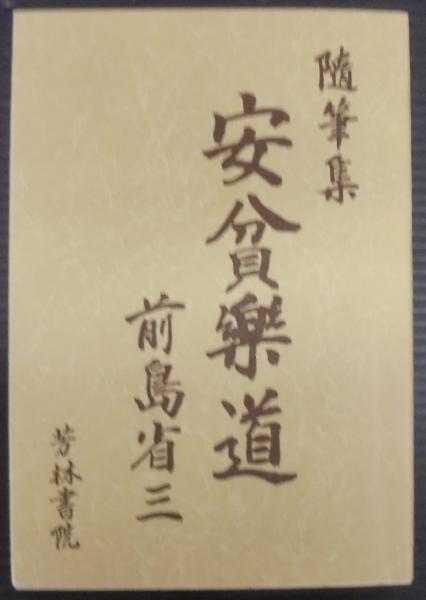 隨筆集
安貧樂道
前島省三
芳林書院